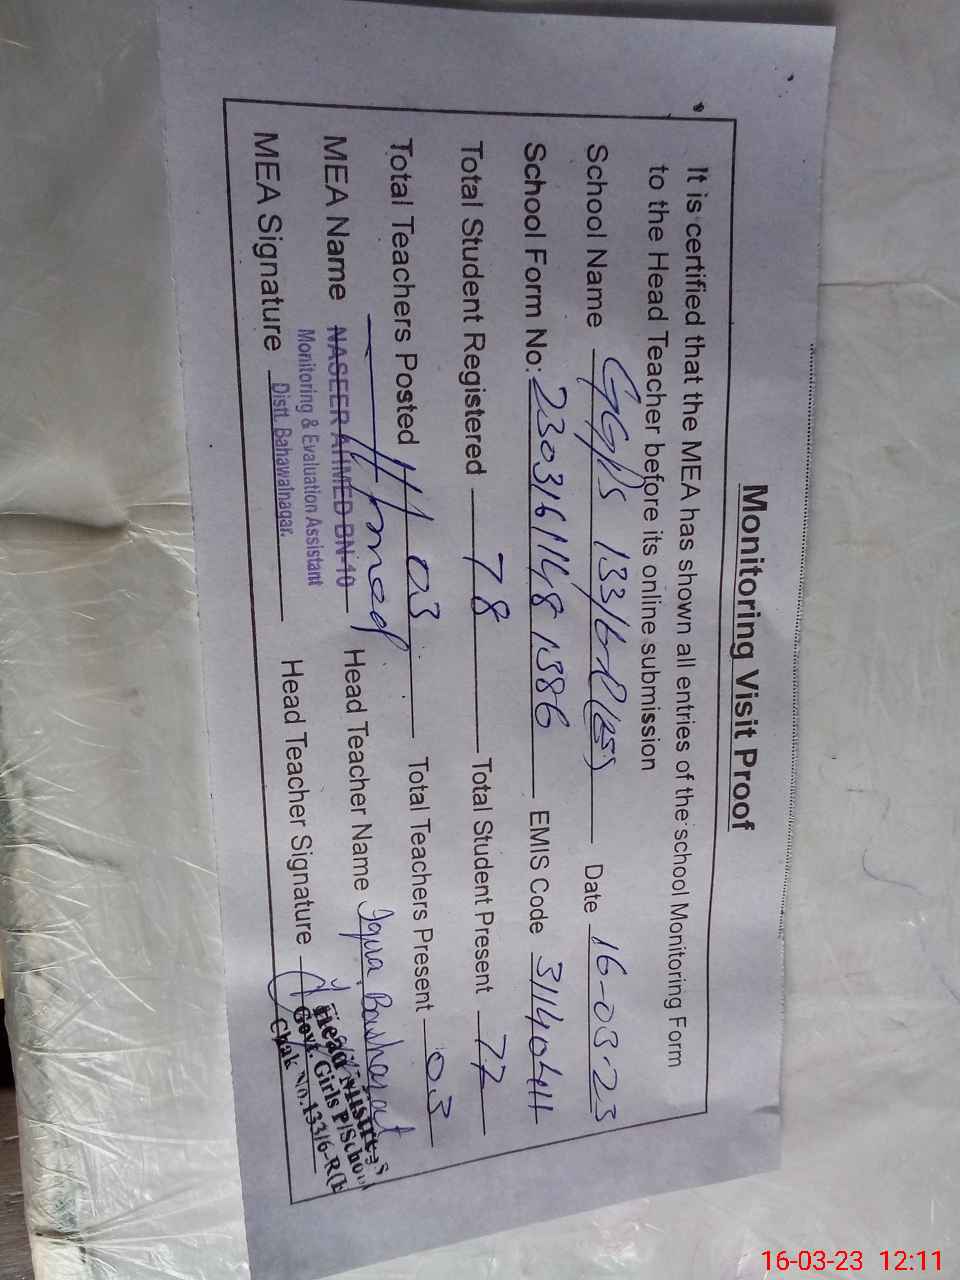 Monitoring Visit Proof
It is certified that the MEA has shown all entries of the school Monitoring Form
to the Head Teacher before its online submission
School Name GGPS 133/6-R(ES) Date 16-03-23
School Form No: 23031611481386 EMIS Code
Total Student Registered 78 Total Student Present 77
Total Teachers Posted 03 Total Teachers Present 03
MEA Name NASEER AHMED BN-10 Head Teacher Name Iqura Basharat
Monitoring & Evaluation Assistant
Distt. Bahawalnagar.
MEA Signature Head Teacher Signature
Head Mistress
Govt. Girls P/School
Chak No.133/6-R(E
16-03-23 12:11